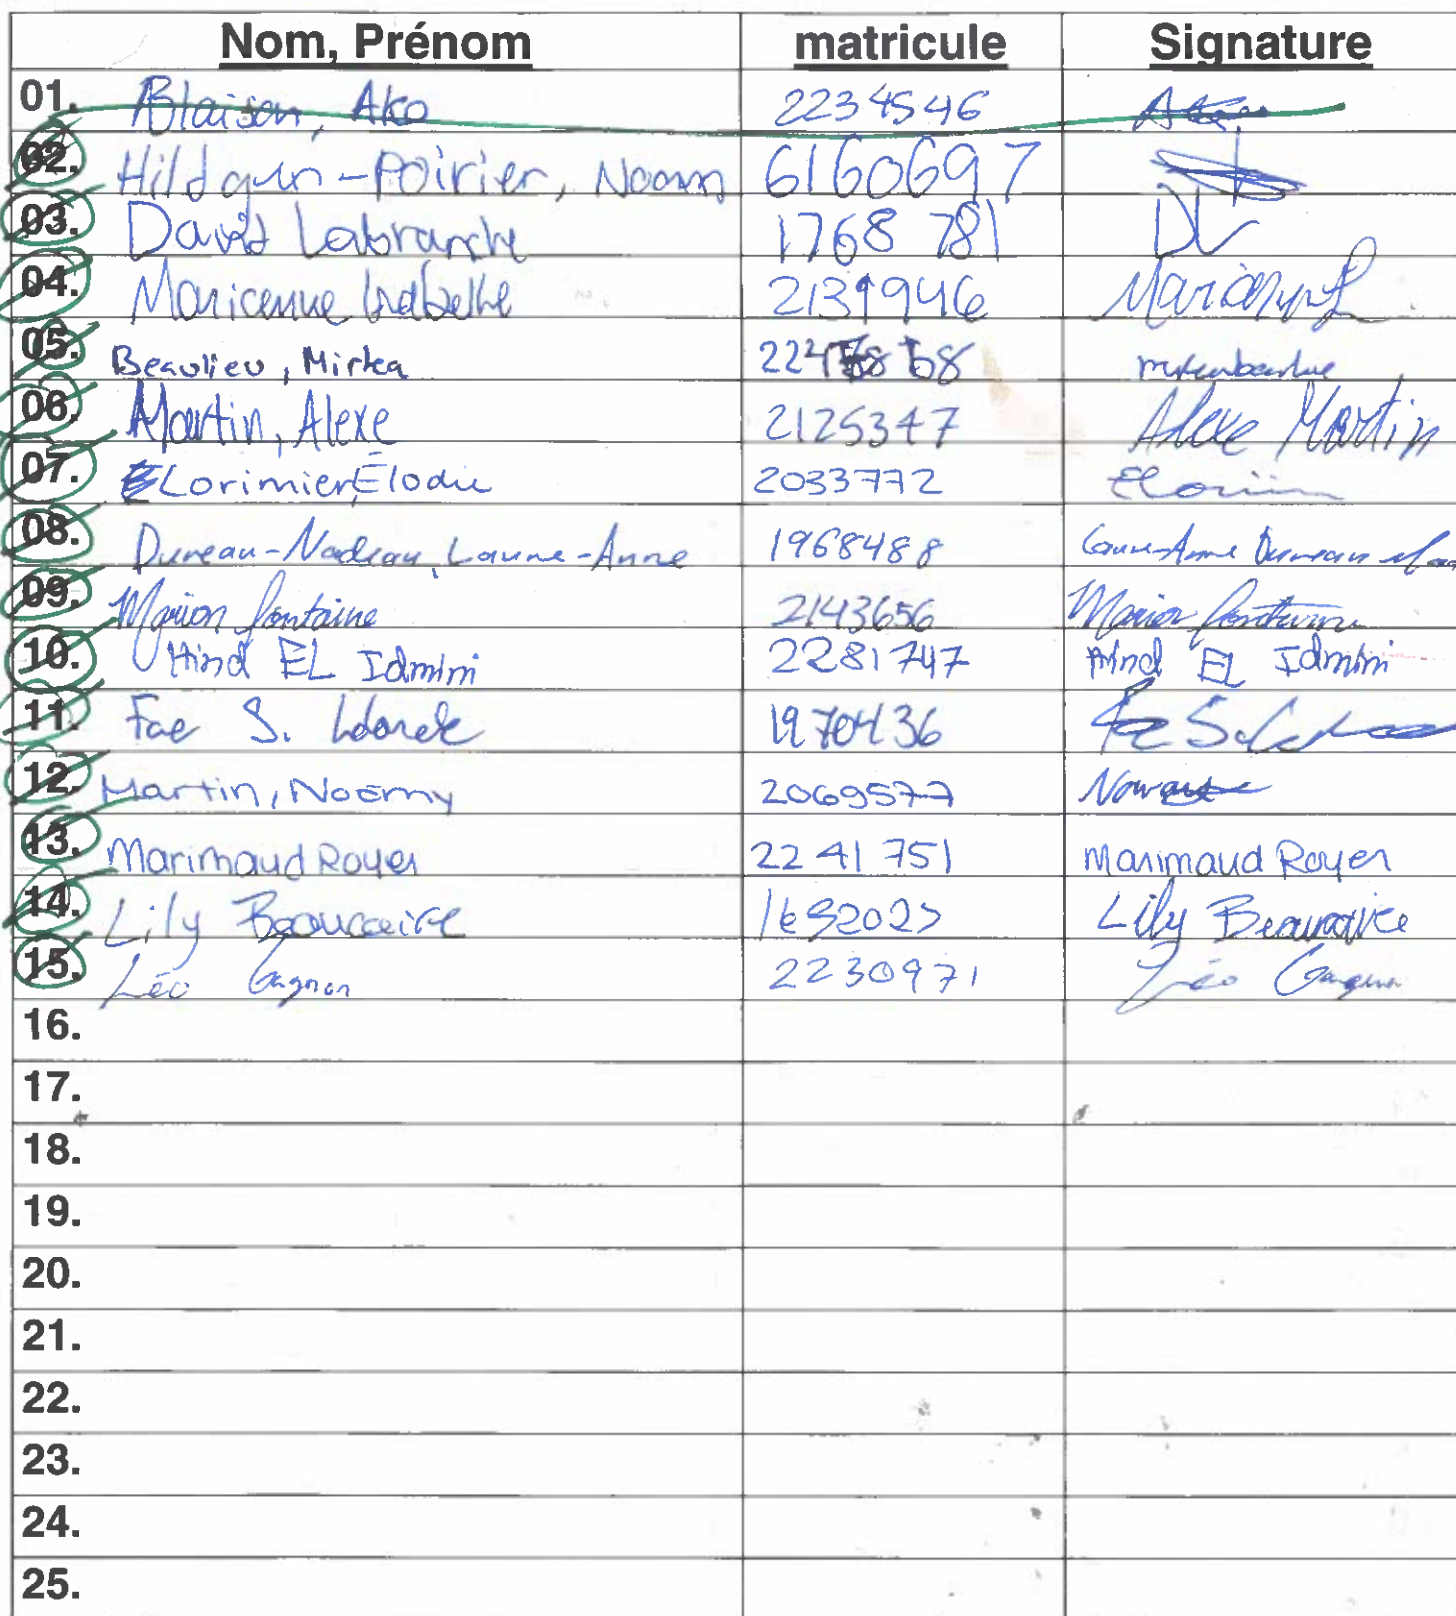 Nom, Prénom matricule Signature
01. Blaison, Ako 2234546
02. Hildgun-Poirier, Noam 6160697
03. David Labranche 1768 781 DL
04. Maricenne 2139946
05. Beaulieu, Mirka
06. Martin, Alexe 2125347 Alexe Martin
07. Lorimier, Élodie 2033772
08. Duneau-Nadeau, Laurie-Anne 1968488
09. Marion Fontaine 2143656 Marion Fontaine
10. Hind EL Idmini 2281747 Hind EL Idmini
11. Fae S. 1970436
12. Martin, Noémy 2069577
13. Marimaud Royer 2241751 Marimaud Royer
14. Lily Beaucaire Lily Beaucaire
15. Léo Gagnon 2230971 Léo Gagnon
16.
17.
18.
19.
20.
21.
22.
23.
24.
25.